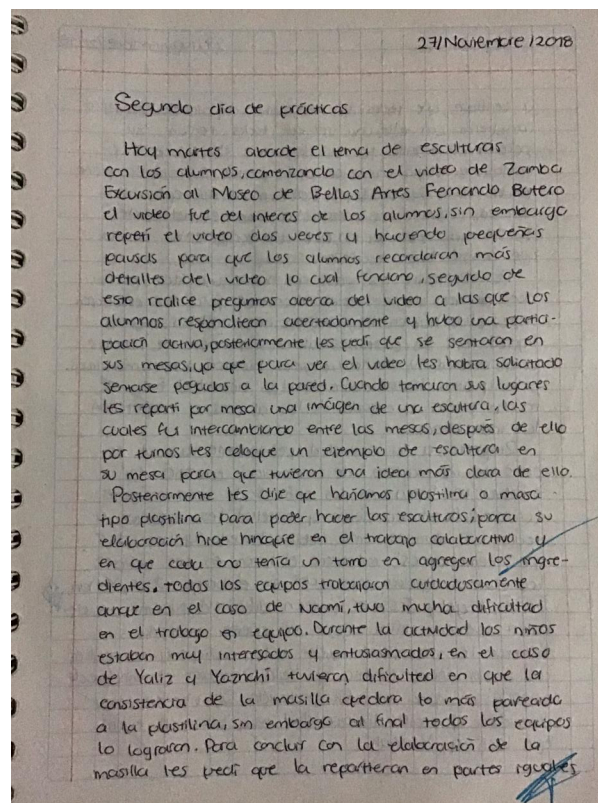 27/Noviembre/2018
Segundo día de prácticas
Hoy martes aborde el tema de esculturas
con los alumnos, comenzando con el video de Zamba
Excursión al Museo de Bellas Artes Fernando Botero
el video fue del interes de los alumnos, sin embargo
repetí el video dos veces y haciendo pequeñas
pausas para que los alumnos recordaran más
detalles del video lo cual funciono, seguido de
esto realice preguntas acerca del video a las que los
alumnos respondieron acertadamente y hubo una partici-
pación activa, posteriormente les pedí que se sentaran en
sus mesas, ya que para ver el video les habia solicitado
sentarse pegados a la pared. Cuando tomaron sus lugares
les repartí por mesa una imágen de una escultura, las
cuales fui intercambiando entre las mesas, después de ello
por turnos les coloque un ejemplo de escultura en
su mesa para que tuvieron una idea más clara de ello.
Posteriormente les dije que haríamos plastilina o masa
tipo plastilina para poder hacer las esculturas; para su
elaboración hice hincapie en el trabajo colaborativo y
en que cada uno tenía un turno en agregar los ingre-
dientes. Todos los equipos trabajaron cuidadosamente
aunque en el caso de Naomi, tuvo mucha dificultad
en el trabajo en equipo. Durante la actividad los niños
estaban muy interesados y entusiasmados, en el caso
de Yaliz y tuvieron dificultad en que la
consistencia de la masilla quedara lo más pareado
a la plastilina, sin embargo al final todos los equipos
lo lograron. Para concluir con la elaboración de la
masilla les pedí que la repartieran en partes iguales